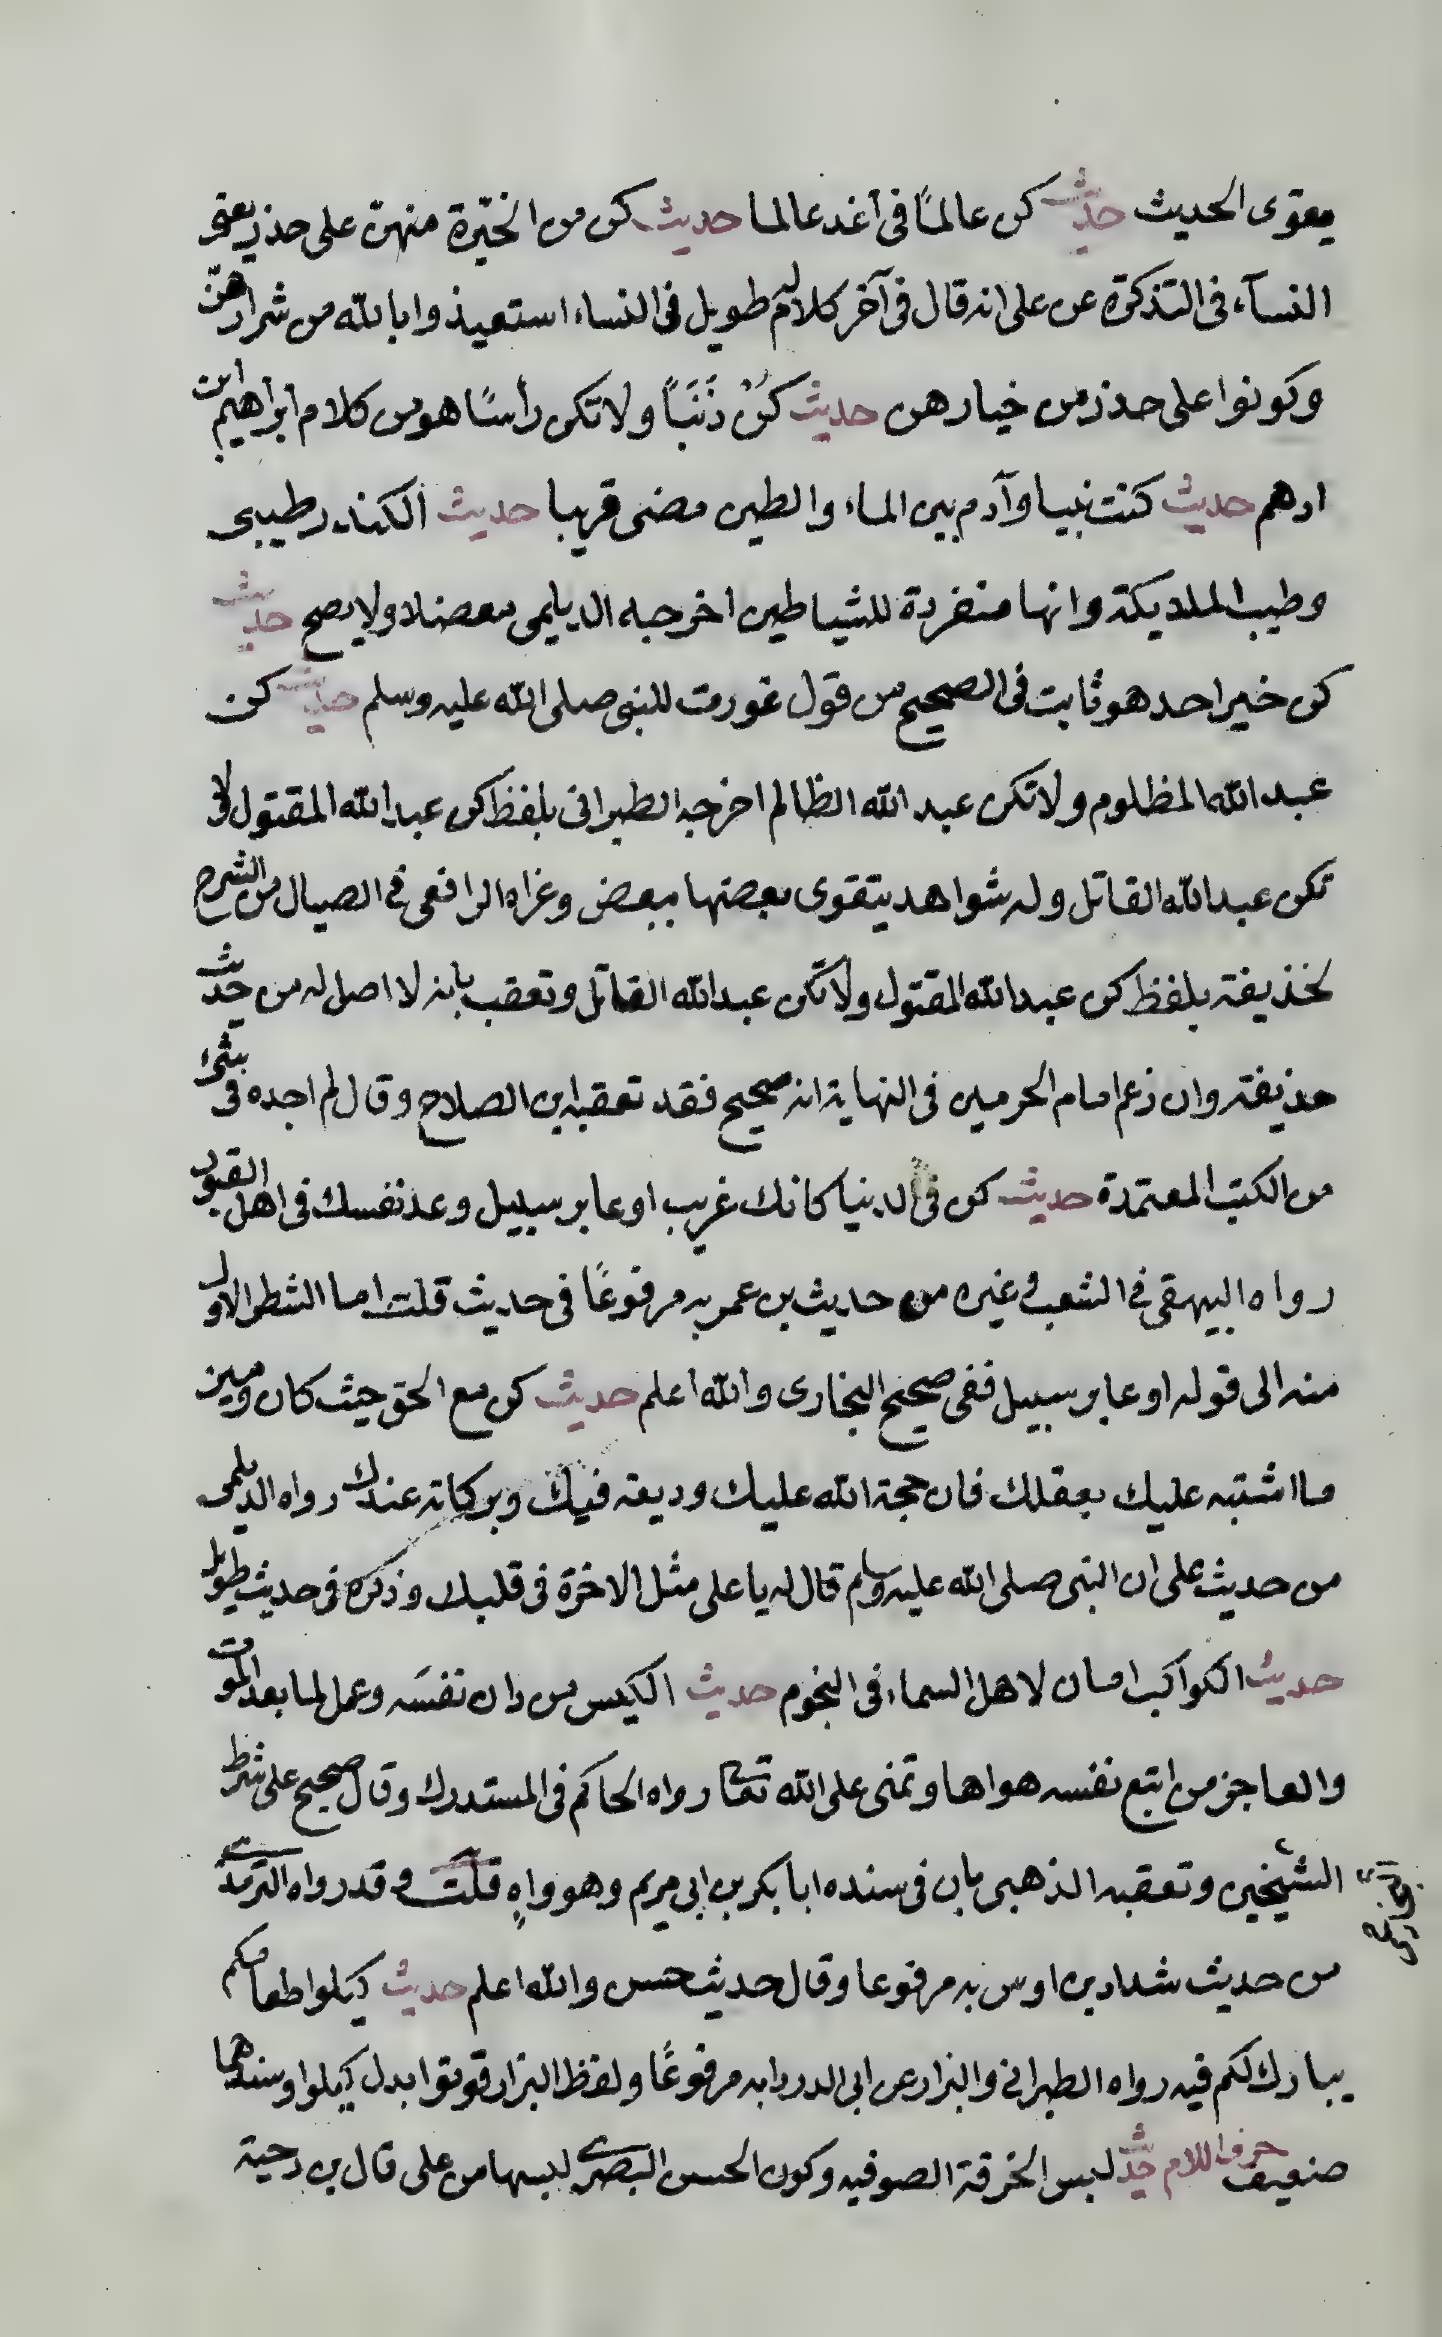 يعقوى الحديث حديث كن عالمًا في أغد عالما حديث كن من الخيّرة منهنّ على حذر يعنى
النسآء في التذكرة عن على انه قال في آخر كلام له طويل في النساء استعيذوا بالله من شرارهنّ
وكونوا على حذر من خيارهن حديث كُنْ ذَنَبًا ولا تكن رأسًا هو من كلام ابراهيم ابن
ادهم حديث كنت نبيا وآدم بين الماء والطين مضى قريبا حديث الكندر طيبى
وطيب الملايكة وانها منفردة للشياطين اخرجه الديلمى معضلا ولا يصح حديث
كن خير احد هو ثابت في الصحيح من قول غورث للنبى صلى الله عليه وسلم حديث كن
عبد الله المظلوم ولا تكن عبد الله الظالم اخرجه الطبرانى بلفظ كن عبد الله المقتول ولا
تكن عبد الله القاتل وله شواهد يتقوى بعضها ببعض وعزاه الرافعى في الصيال من الشرح
لحذيفة بلفظ كن عبد الله المقتول ولا تكن عبد الله القاتل وتعقب بانه لا اصل له من حديث
حذيفة وان زعم امام الحرمين في النهاية انه صحيح فقد تعقبه ابن الصلاح وقال لم اجده في شئ
من الكتب المعتمدة حديث كن في الدنيا كانك غريب او عابر سبيل وعد نفسك في اهل القبور
رواه البيهقى في الشعب وغيره من حديث بن عمر به مرفوعًا في حديث قلت اما الشطر الاول
منه الى قوله او عابر سبيل ففى صحيح البخارى والله اعلم حديث كن مع الحق حيث كان وميز
ما اشتبه عليك بعقلك فان حجة الله عليك وديعة فيك وبركاته عندك رواه الديلمى
من حديث على ان النبى صلى الله عليه وسلم قال له يا على مثل الاخرة في قلبك وذكره في حديث طويل
حديث الكواكب امان لاهل السماء في النجوم حديث الكيس من دان نفسَه وعمل لما بعد الموت
والعاجز من اتبع نفسه هواها وتمنى على الله تعا رواه الحاكم في المستدرك وقال صحيح على شرط
الشيخين وتعقبه الذهبى بان في سنده ابا بكر بن ابى مريم وهو واهٍ قلت وقد رواه الترمذى
من حديث شداد بن اوس به مرفوعا وقال حديث حسن والله اعلم حديث كيلوا طعامكم
يبارك لكم فيه رواه الطبرانى والبزار عن ابى الدرداء به مرفوعًا ولفظ البزار قوتوا بدل كيلوا وسندهما
ضعيف حرف اللام حديث لبس الخرقة الصوفيه وكون الحسن البصرى لبسها من على قال بن دحية